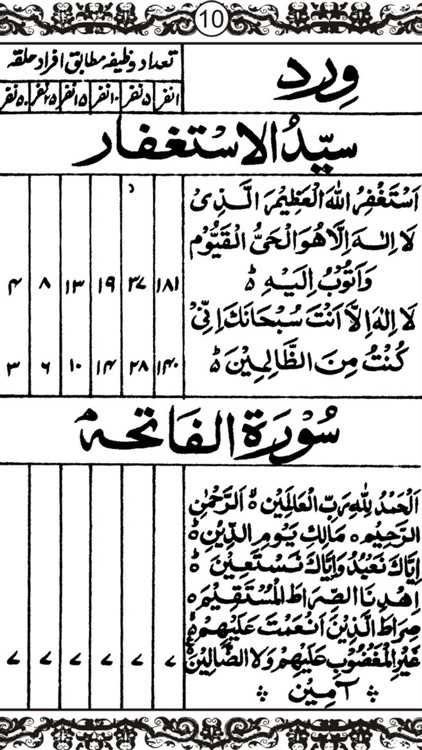 10
ورد
تعداد وظیفہ مطابق افراد حلقہ
۱نفر ۵نفر ۱۰نفر ۱۵نفر ۲۵نفر ۵۰نفر
سیّدُ الاستغفار
اَسْتَغْفِرُ اللهَ الْعَظِيْمَ الَّذِىْ
لَا اِلٰهَ اِلَّا هُوَ الْحَىُّ الْقَيُّوْمُ
وَاَتُوْبُ اِلَيْهِ ۱۸۱ ۳۷ ۱۹ ۱۳ ۸ ۴
لَا اِلٰهَ اِلَّا اَنْتَ سُبْحَانَكَ اِنِّىْ
كُنْتُ مِنَ الظَّالِمِيْنَ ۱۴۰ ۲۸ ۱۴ ۱۰ ۶ ۳
سُوْرَةُ الفَاتحہ
اَلْحَمْدُ لِلّٰهِ رَبِّ الْعَالَمِيْنَ الرَّحْمٰنِ
الرَّحِيْمِ مَالِكِ يَوْمِ الدِّيْنِ
اِيَّاكَ نَعْبُدُ وَاِيَّاكَ نَسْتَعِيْنُ
اِهْدِنَا الصِّرَاطَ الْمُسْتَقِيْمَ
صِرَاطَ الَّذِيْنَ اَنْعَمْتَ عَلَيْهِمْ
غَيْرِ الْمَغْضُوْبِ عَلَيْهِمْ وَلَا الضَّالِّيْنَ ۷ ۷ ۷ ۷ ۷ ۷
آمِيْن